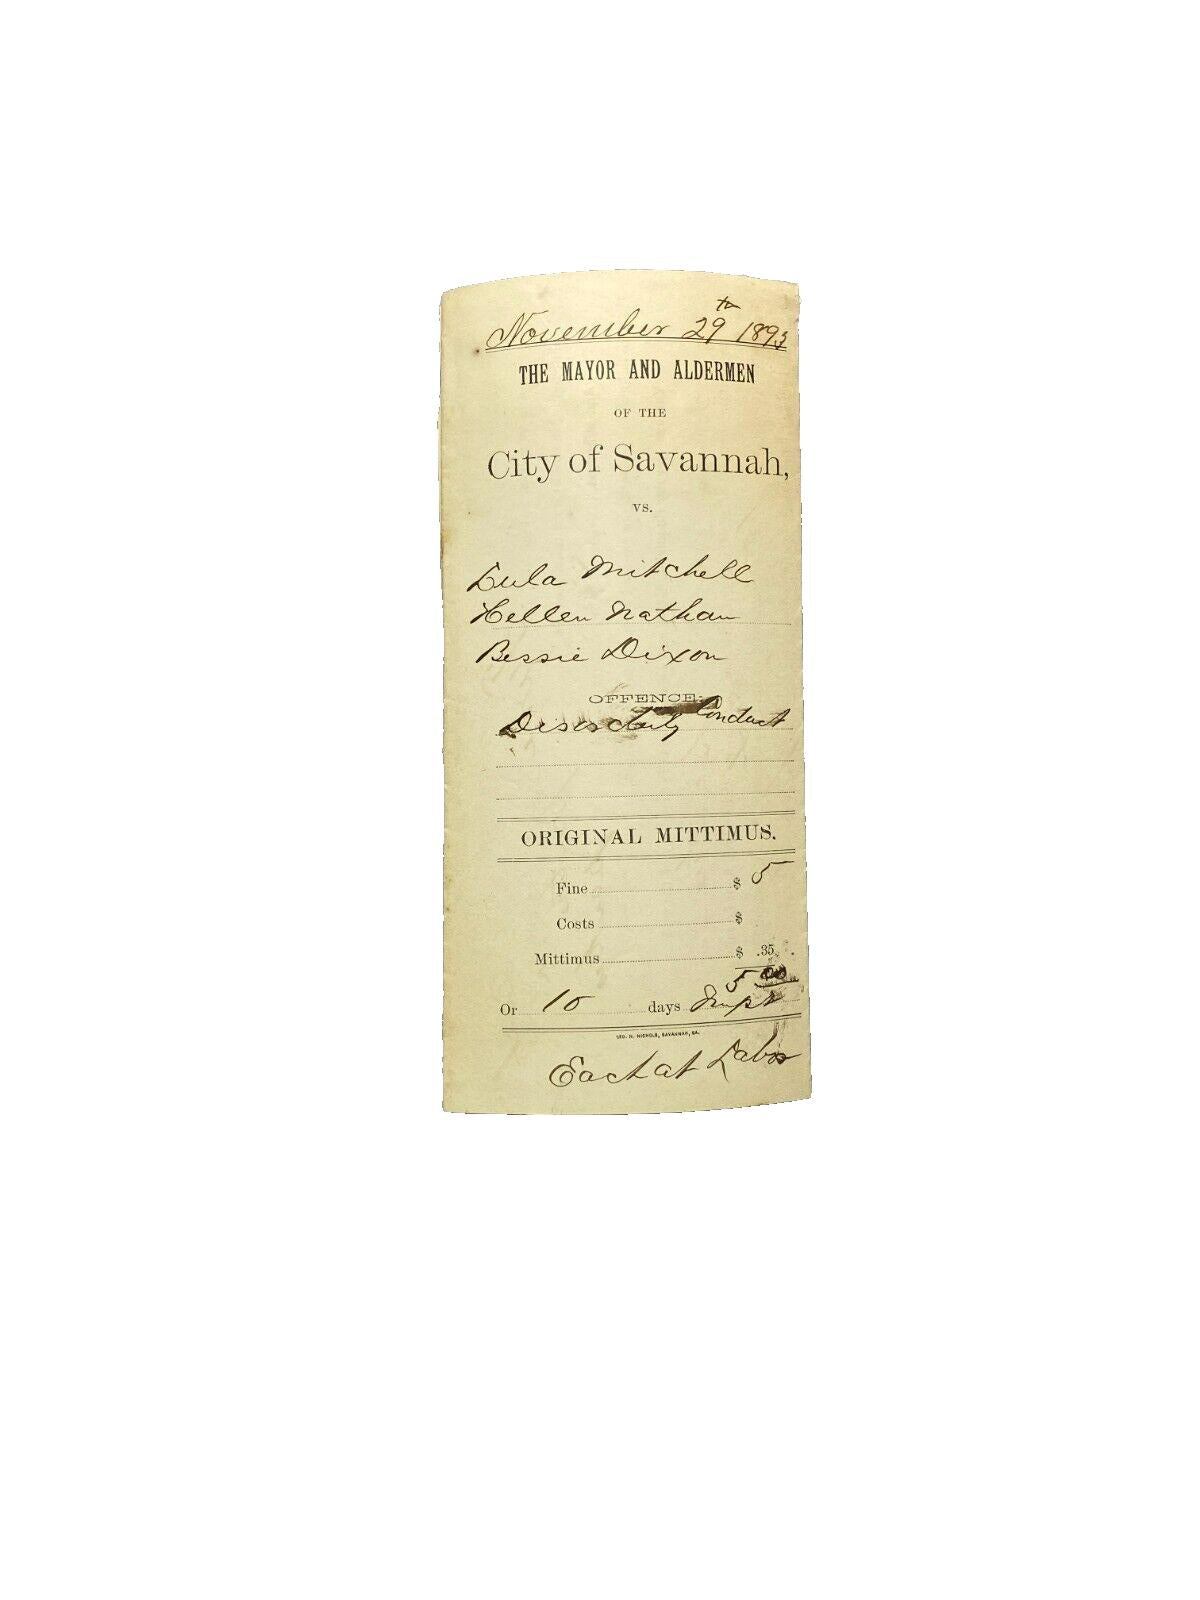 November 29th 1893
THE MAYOR AND ALDERMEN
OF THE
City of Savannah,
VS.
Lula Mitchell
Hellen Nathan
Bessie Dixon
OFFENCE:
Disorderly Conduct
ORIGINAL MITTIMUS.
Fine $ 5
Costs $
Mittimus $ .35
5 00
Or 10 days Impt
GEO. N. NICHOLS, SAVANNAH, GA.
Each at Labor